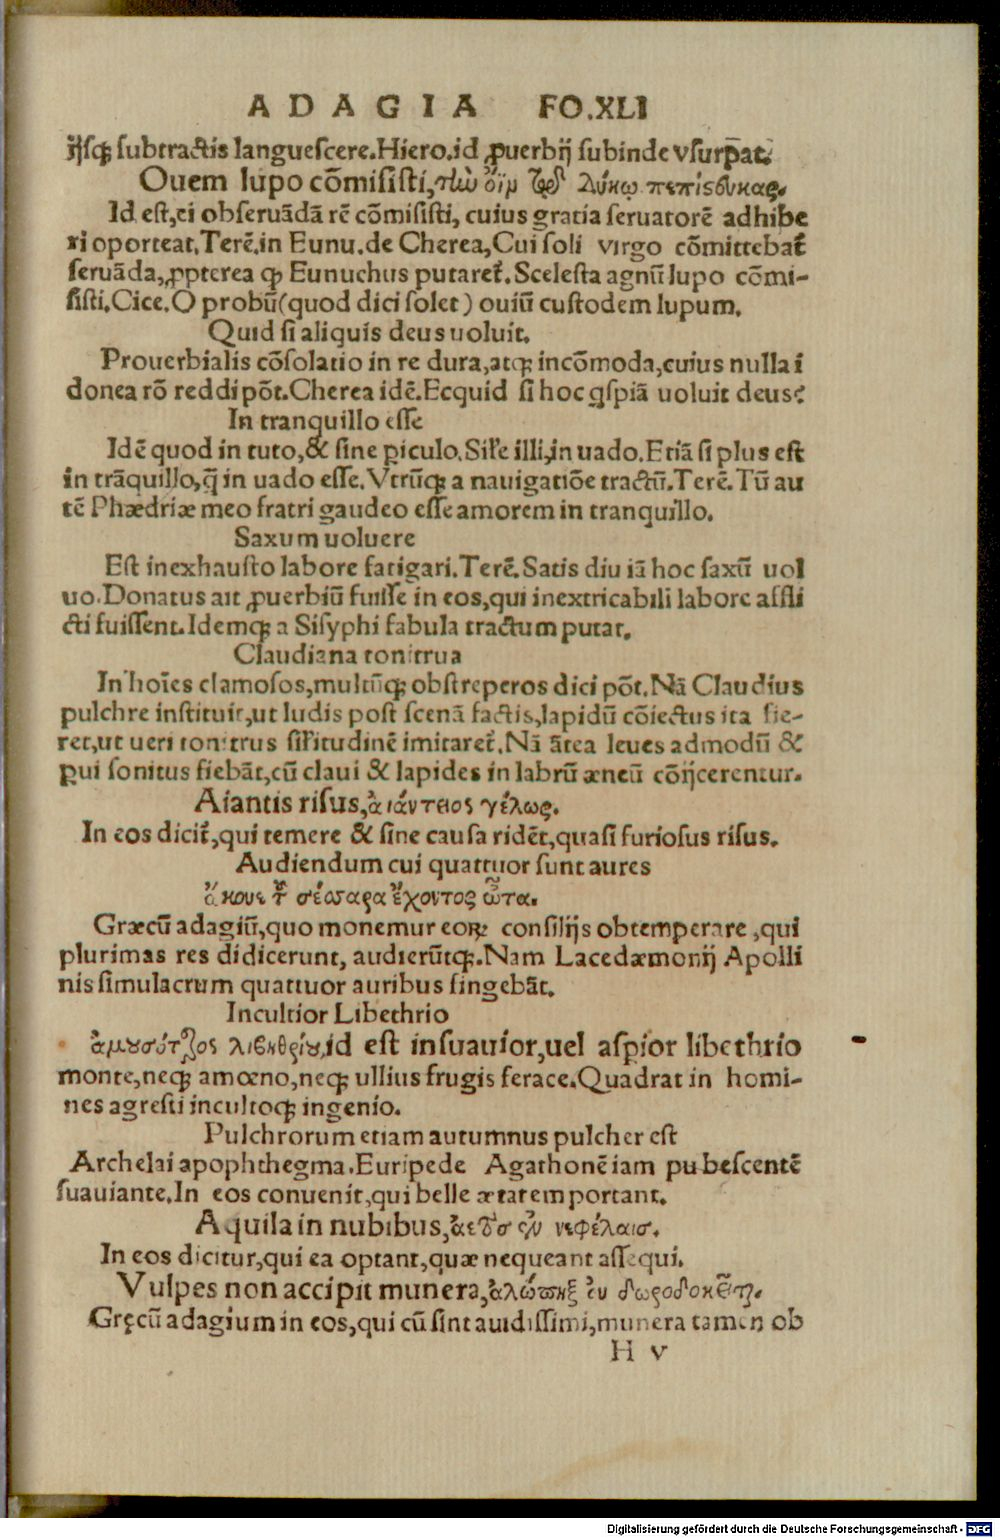 ADAGIA FO.XLI
ijsq; subtractis languescere.Hiero.id ꝓuerbij subinde vsurpat.
Ouem lupo cõmisisti,
Id est,ei obseruãdã rẽ cõmisisti, cuius gratia seruatorẽ adhibe
ri oporteat.Terẽ.in Eunu.de Cherea,Cui soli virgo cõmittebat̃
seruãda,ꝓpterea ꝙ Eunuchus putaret̃.Scelesta agnũ lupo cõmi-
sisti.Cice.O probũ(quod dici solet) ouiũ custodem lupum.
Quid si aliquis deus uoluit.
Prouerbialis cõsolatio in re dura,atq; incõmoda,cuius nulla i
donea rõ reddi põt.Cherea idẽ.Ecquid si hoc qͥspiã uoluit deus?
In tranquillo esse
Idẽ quod in tuto,& sine ꝑiculo.Sil'e illi,in uado.Etiã si plus est
in trãquillo,q̃ in uado esse.Vtrũq; a nauigatiõe tractũ.Terẽ.Tũ au
tẽ Phædriæ meo fratri gaudeo esse amorem in tranquillo.
Saxum uoluere
Est inexhausto labore fatigari.Terẽ.Satis diu iã hoc saxũ uol
uo.Donatus ait ꝓuerbiũ fuisse in eos,qui inextricabili labore affli
cti fuissent.Idemq; a Sisyphi fabula tractum putat.
Claudiana tonitrua
In hoĩes clamosos,multũq; obstreperos dici põt.Nã Claudius
pulchre instituit,ut ludis post scenã factis,lapidũ cõiectus ita fie-
ret,ut ueri tonitrus sil'itudinẽ imitaret̃.Nã ãtea leues admodũ &
ꝑui sonitus fiebãt,cũ claui & lapides in labrũ æneũ cõijcerentur.
Aiantis risus,ἀιάντειος γέλως.
In eos dicit̃,qui temere & sine causa ridẽt,quasi furiosus risus.
Audiendum cui quattuor sunt aures
ἄκουε τ͂ τέσσαρα ἔχοντος ὦτα.
Græcũ adagiũ,quo monemur eoꝝ consilijs obtemperare ,qui
plurimas res didicerunt, audierũtq;.Nam Lacedæmonij Apolli
nis simulacrum quattuor auribus fingebãt.
Incultior Libethrio
ἀμουσότερος λιβηθρίου,id est insuauior,uel aspior libethrio
monte,neq; amœno,neq; ullius frugis ferace.Quadrat in homi-
nes agresti incultoq; ingenio.
Pulchrorum etiam autumnus pulcher est
Archelai apophthegma.Euripede Agathonẽ iam pubescentẽ
suauiante.In eos conuenit,qui belle ætatem portant.
Aquila in nubibus,ἀετὸσ ἐν νεφέλαισ.
In eos dicitur,qui ea optant,quæ nequeant assequi.
Vulpes non accipit munera,ἀλώπηξ ου δωροδοκεῖται.
Gręcũ adagium in eos,qui cũ sint auidissimi,munera tamen ob
H v
Digitalisierung gefördert durch die Deutsche Forschungsgemeinschaft - DFG